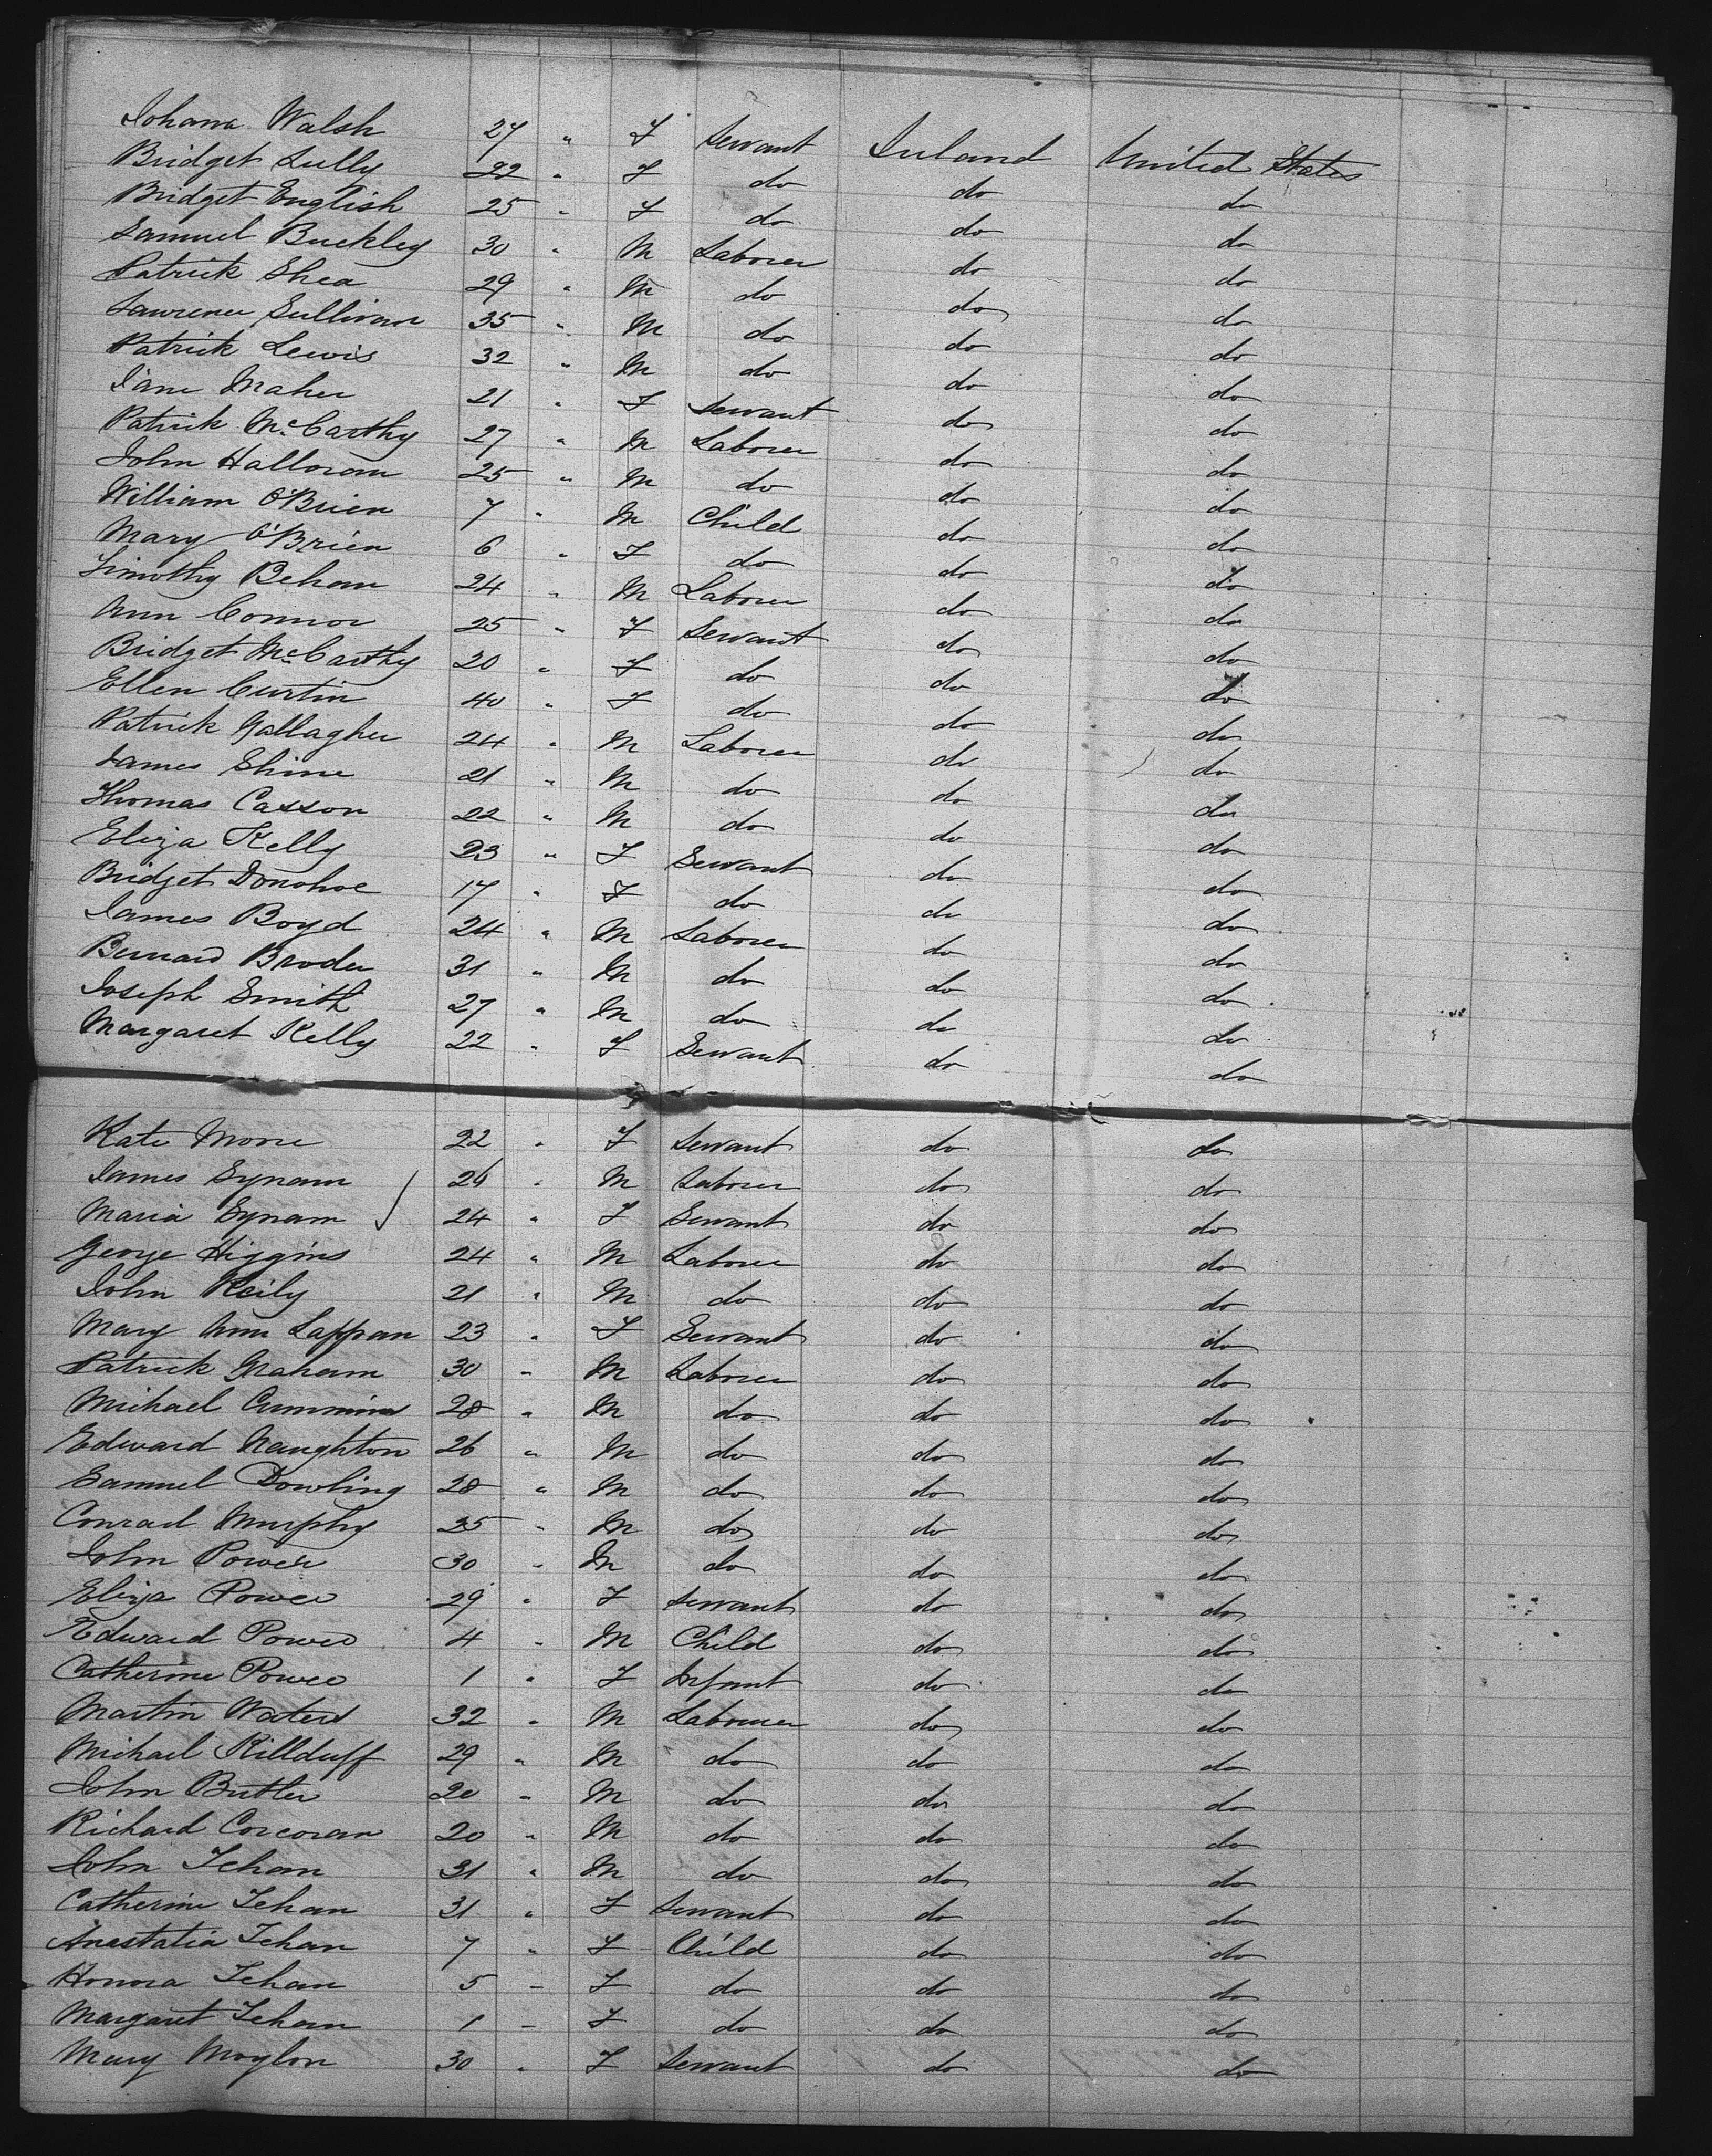 Johana Walsh 27 " F Servant Ireland United States
Bridget Lully 22 " F do do do
Bridget English 25 " F do do do
Samuel Buckley 30 " M Laborer do do
Patrick Shea 29 " M do do do
Lawrence Sullivan 35 " M do do do
Patrick Lewis 32 " M do do do
Jane Maher 21 " F Servant do do
Patrick McCarthy 27 " M Laborer do do
John Halloran 25 " M do do do
William O'Brien 7 " M Child do do
Mary O'Brien 6 " F do do do
Timothy Behan 24 " M Laborer do do
Ann Connor 25 " F Servant do do
Bridget McCarthy 20 " F do do do
Ellen Curtin 40 " F do do do
Patrick Gallagher 24 " M Laborer do do
James Shine 21 " M do do do
Thomas Casson 22 " M do do do
Eliza Kelly 23 " F Servant do do
Bridget Donohoe 17 " F do do do
James Boyd 24 " M Laborer do do
Bernard Broder 31 " M do do do
Joseph Smith 27 " M do do do
Margaret Kelly 22 " F Servant do do
Kate Morre 22 " F Servant do do
James Synam 26 " M Laborer do do
Maria Synam 24 " F Servant do do
George Higgins 24 " M Laborer do do
John Reily 21 " M do do do
Mary Ann Lappan 23 " F Servant do do
Patrick Graham 30 " M Laborer do do
Michael Cummins 28 " M do do do
Edward Naughton 26 " M do do do
Samuel Dowling 28 " M do do do
Conrad Murphy 25 " M do do do
John Power 30 " M do do do
Eliza Power 29 " F Servant do do
Edward Power 4 " M Child do do
Catherine Power 1 " F Infant do do
Martin Waters 32 " M Labourer do do
Michael Killduff 29 " M do do do
John Butler 20 " M do do do
Richard Corcoran 20 " M do do do
John Tehan 31 " M do do do
Catherine Tehan 31 " F Servant do do
Anastatia Tehan 7 " F Child do do
Honora Tehan 5 " F do do do
Margaret Tehan 1 " F do do do
Mary Moylon 30 " F Servant do do